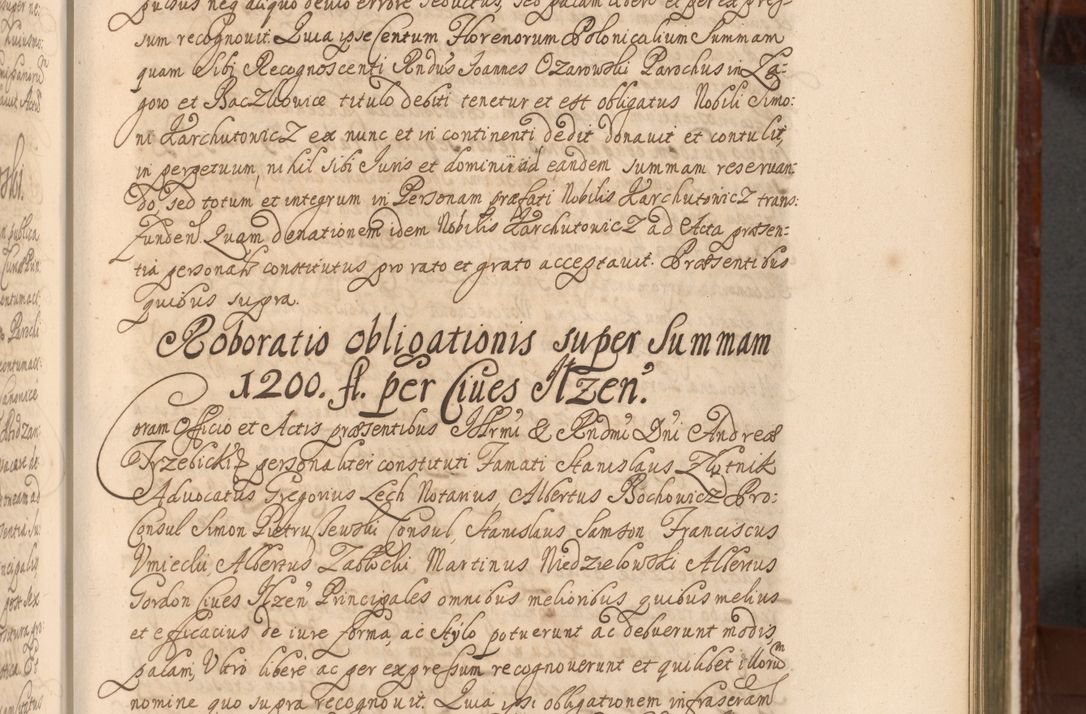 pulsus neq aliquo devio errore seductus, sed palam libere et per expres-
sum recognovit. Quia ipse Centum Florenorum Polonicalium Summam
quam Sibi Recognoscenti Rndus Joannes Ozarowski Parochus in Za-
gow et Baczkowice titulo debiti tenetur et est obligatus Nobili Simo:
ni Karchutowicz ex nunc et in continenti dedit donavit et contulit,
in perpetuum, nihil Sibi Juris et dominii ad eandem summam reservan-
do, sed totum et integrum in Personam præfati Nobilis Karchutowicz trans:
funden. Quam donationem idem Nobilis Karchutowicz ad Acta præsen-
tia personalr constitutus pro rato et grato acceptavit. Præsentibus
quibus supra.
Roboratio obligationis super Summam
1200. fl. per Cives Ilzen.
Coram Officio et Actis præsentibus Illrmi & Rndmi Dni Andreæ
Trzebicki personaliter constituti Famati Stanislaus Złotnik
Advocatus Gregorius Lech Notarius Albertus Bochowicz Pro:
Consul Simon Pietruszewski Consul, Stanislaus Samson Franciscus
Umiecki, Albertus Zabłocki Martinus Niedzielowski Albertus
Gordon Cives Ilzen Principales omnibus melioribus, quibus melius
et efficacius de iure forma, ac stylo potuerunt ac debuerunt modis,
palam, Ultro libere ac per expressum recognoverunt et quilibet illorum
nomine quo supra recognovit. Quia ipsi obligationem infraseram